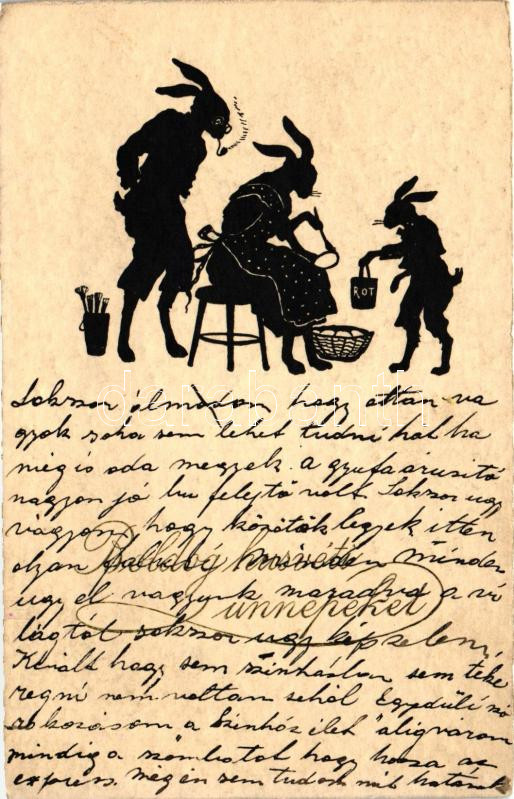 ROT
Sokszor álmodom, hogy ottan va
gyok soha sem lehet tudni hát ha
még is oda megyek. a gyufaárusitó
nagyon jó bu felejtő volt. Sokszor ugy
vágyom, hogy köztök legyek itten
olyan minden
Boldog husvéti
ugy el vagyunk maradva a vi
ünnepeket
lágtól sokszor ugy képzelem,
hogy sem szinházban sem teke
regni nem voltam sehól Egyedüli szó
rakozásom a Szinházi élet alig várom
mindig a szombatot hogy hozza az
express. még én sem tudom